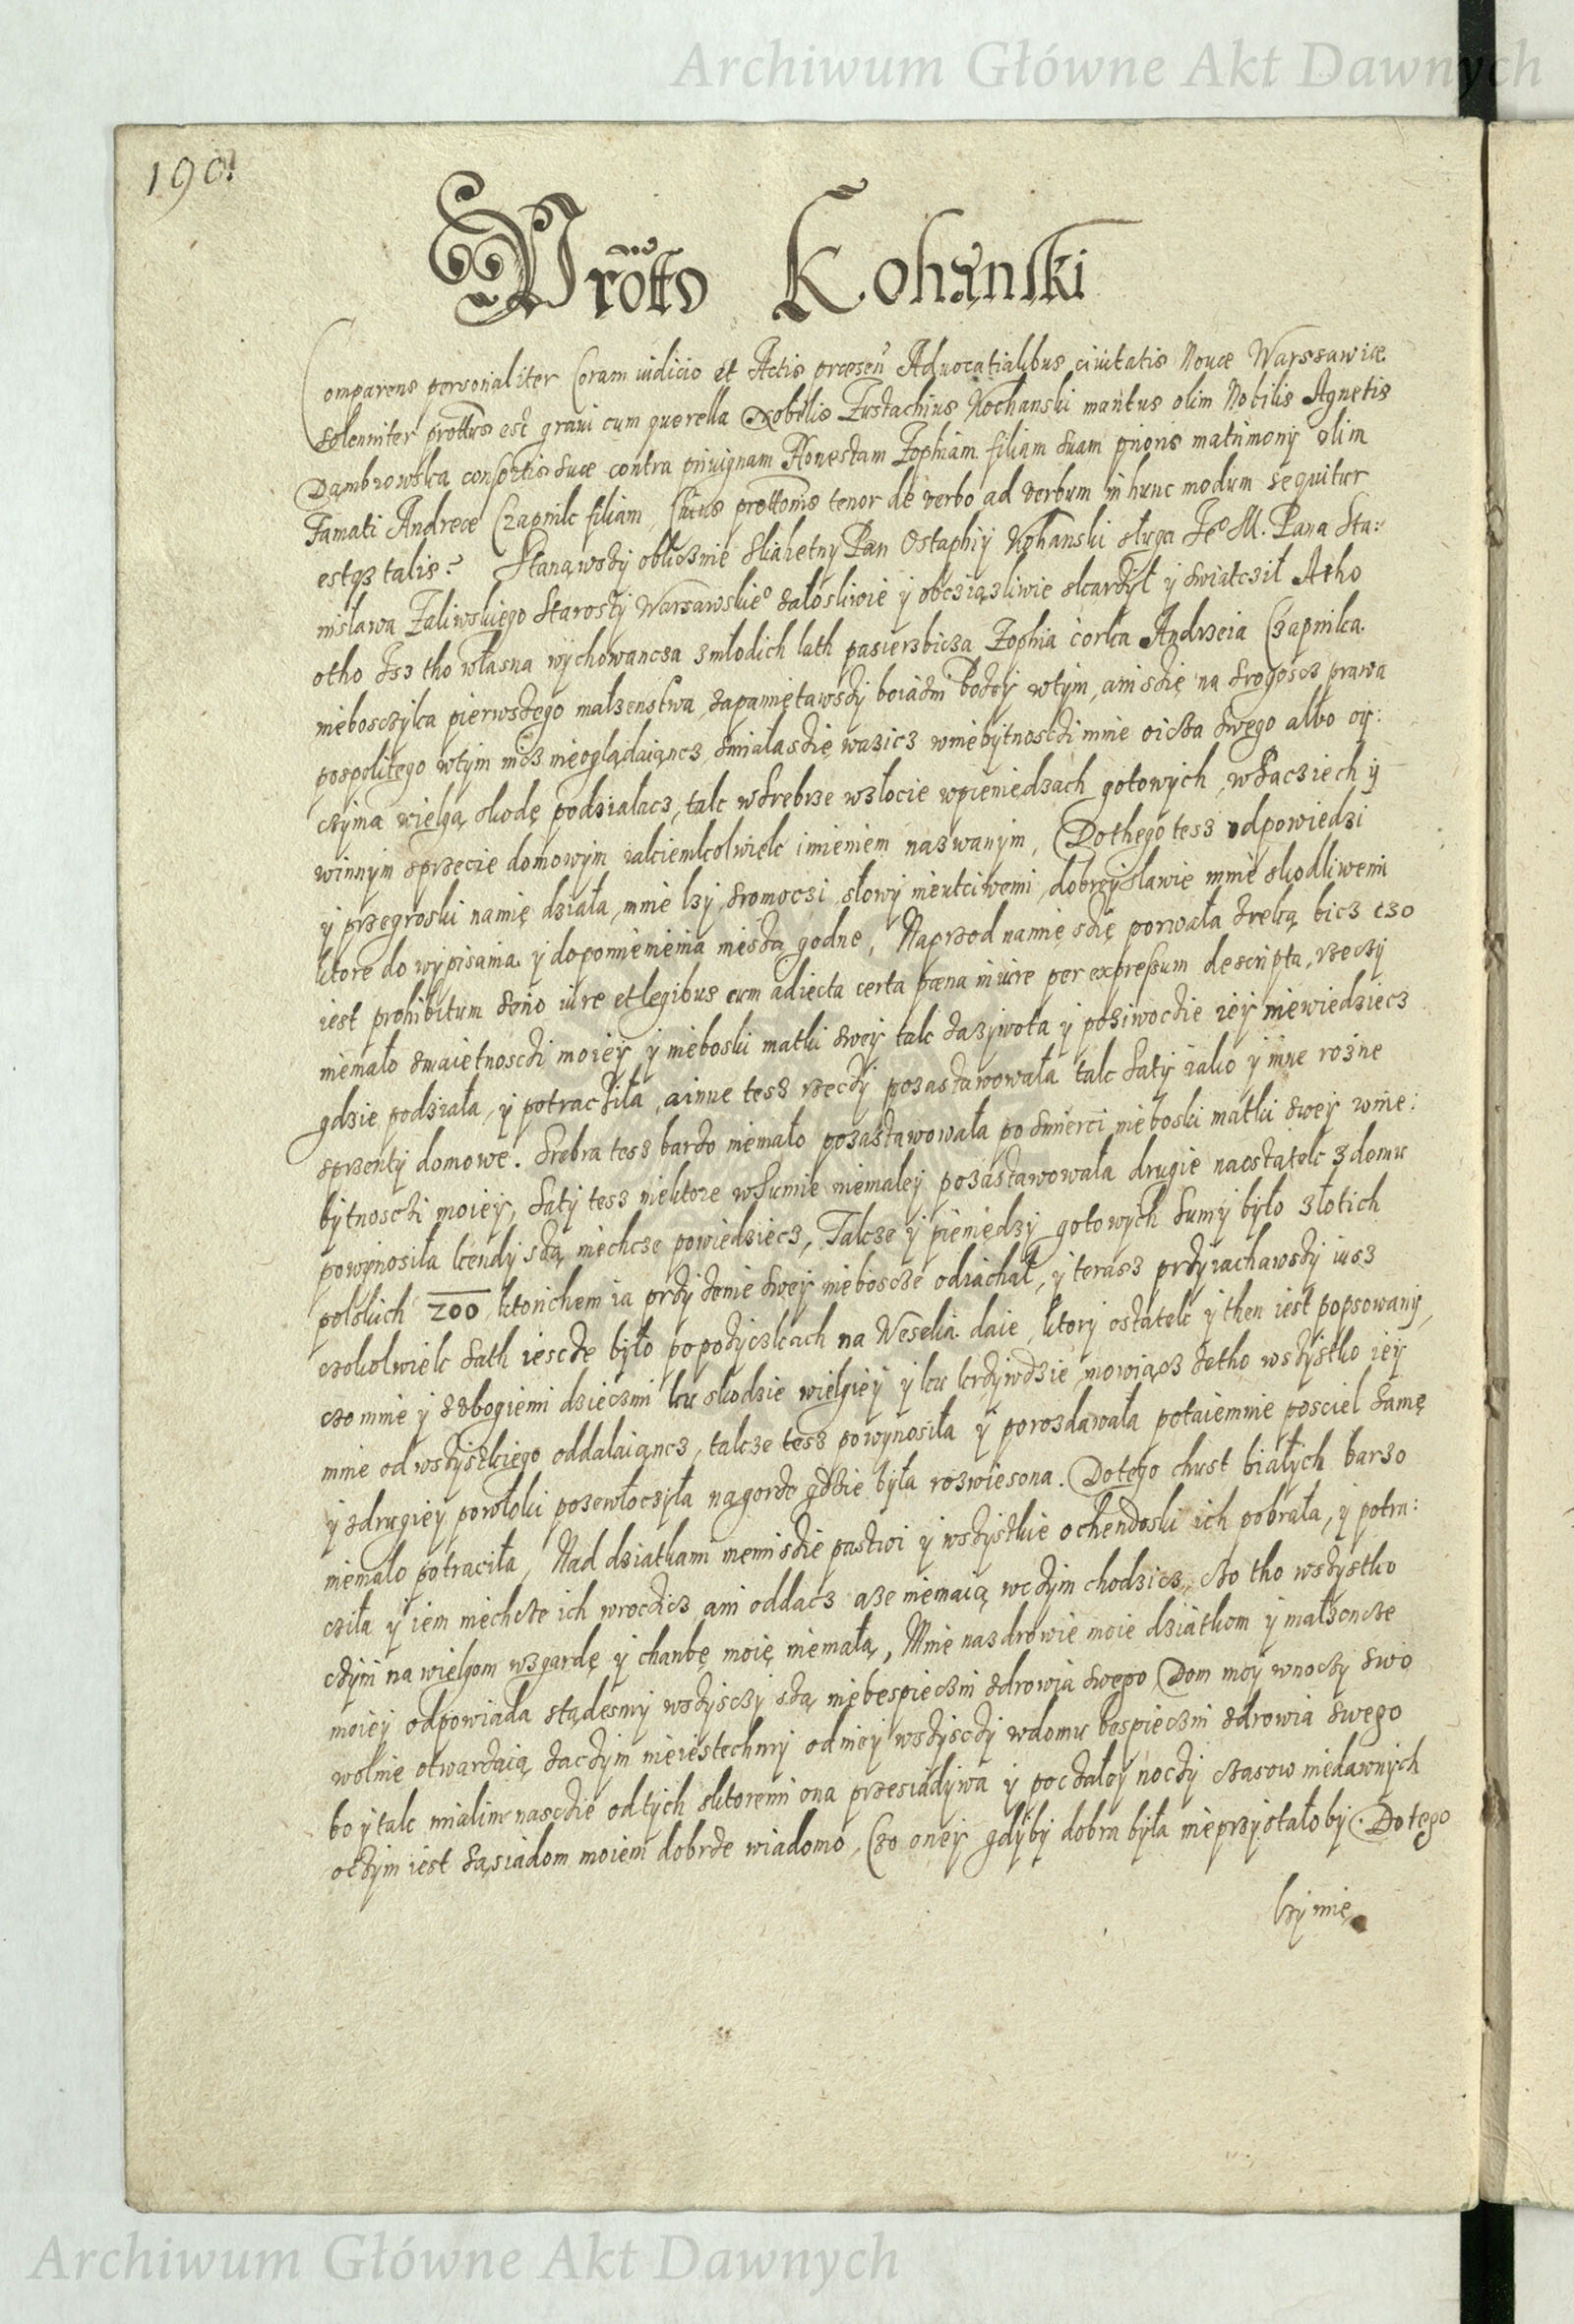 Archiwum Główne Akt Dawnych
190
Protto Kohanski
Comparens personaliter Coram iudicio et Actis præsen Aduocatialibus ciuitatis Nouæ Warssawiæ
solenniter prottus est graui cum querella Nobilis Eustachius Kochanski maritus olim Nobilis Agnetis
Dąmbrowska consortis suæ contra priuignam Honestam Zophiam filiam suam prioris matrimony olim
Famati Andreæ Czapnik filiam, Cuius prottonis tenor de verbo ad verbum in hunc modum sequitur
estqz talis: Stanąwszy oblicznie Sliahetny Pan Ostaphiy Kohanski sługa Je° M. Pana Sta:
nisława Zaliwskiego Starosty Warsawskie° załosliwie y obcziązliwie skarżył y swiatcził Atho
otho Isz tho własna wychowancza zmłodich lath pasierbicza Zophia corka Andrzeia Czapnika
nieboszczyka pierwszego malzenstwa, zapamiętawszy boiazni Bożey wtym, ani szię na srogoscz prawa
pospolitego wtym nicz nieoglądaiącz smiała szię wazicz wniebytnosczi mnie oicza swego albo oy:
czyma wielgą skodę podzialacz, tak wsrebrze wzłocie wpieniędzach gotowych, wszacziech y
winnym sprzecie domowym iakiemkolwiek imieniem nazwanym, Dothego tesz odpowiedzi
y przegroski namię działa, mnie lzy, sromoczi, słowy nieutciwemi, dobrey sławie mnie skodliwemi
ktore do wypisania y dopomnienienia mieszcza godne, Naprzod namię szię porwała Ręką bicz czo
iest prohibitum omo iure et legibus cum adiecta certa pæna in iure per expressum descripta, rzeczy
niemało zmaietnosczi moiey y nieboski matki swey tak zazywota y poziwoczie iey niewiedziecz
gdzie podziała, y potracziła, a inne tesz rzeczy pozastawowała tak szaty iako y inne rozne
sprzenty domowe. Srebra tesz bardzo niemało pozastawowała po smierci nieboski matki swey wnie:
bytnosczi moiey, szaty tesz niektore wsumie niemałey pozastawowała drugie naostatek z domu
powynosiła kendy szą niechcze powiedziecz, Takze y pieniedzy gotowych sumy było złotich
polskich 200 ktorichem ia przy żenie swey nieboscze odiachał, y terasz przyiachawszy iusz
czokolwiek szath iescze było po pożyczkach na Weselia daie, ktory ostatek y then iest popsowany,
czo mnie y zubogiemi dzieczmi ku skodzie wielgiey y ku krzywdzie mowiącz że tho wszystko iey
mnie od wszystkiego oddalaiącz, takze tesz powynosiła y porozdawała potaiemnie posciel samę
y zdrugiey powłoki pozewłoczyła nagorze gdzie była rozwiesona. Do tego chust białych barzo
niemało potraciła, Nad dziatkami memi szie pastwi y wszystkie ochendoski ich pobrała, y potra:
cziła y iem niechcze ich wroczicz ani oddacz aze niemaią wczym chodzicz, czo tho wszystko
czyni na wielgom wzgardę y chanbę moię niemałą, Mnie nazdrowie moie dziatkom y małzoncze
moiey odpowiada stądesmy wszyszczy szą niebespieczni zdrowia swego Dom moy wnoczy swo
wolnie otwarzaią zaczym nieiestechmy odniey wszyszczy wdomu bespieczni zdrowia swego
bo y tak mialim naszie od tych sktoremi ona przesiadywa y poczałey noczy czasow niedawnych
oczym iest sąsiadom moiem dobrze wiadomo, Czo oney gdyby dobra była nieprzystałoby. Do tego
lzy mię
Archiwum Główne Akt Dawnych